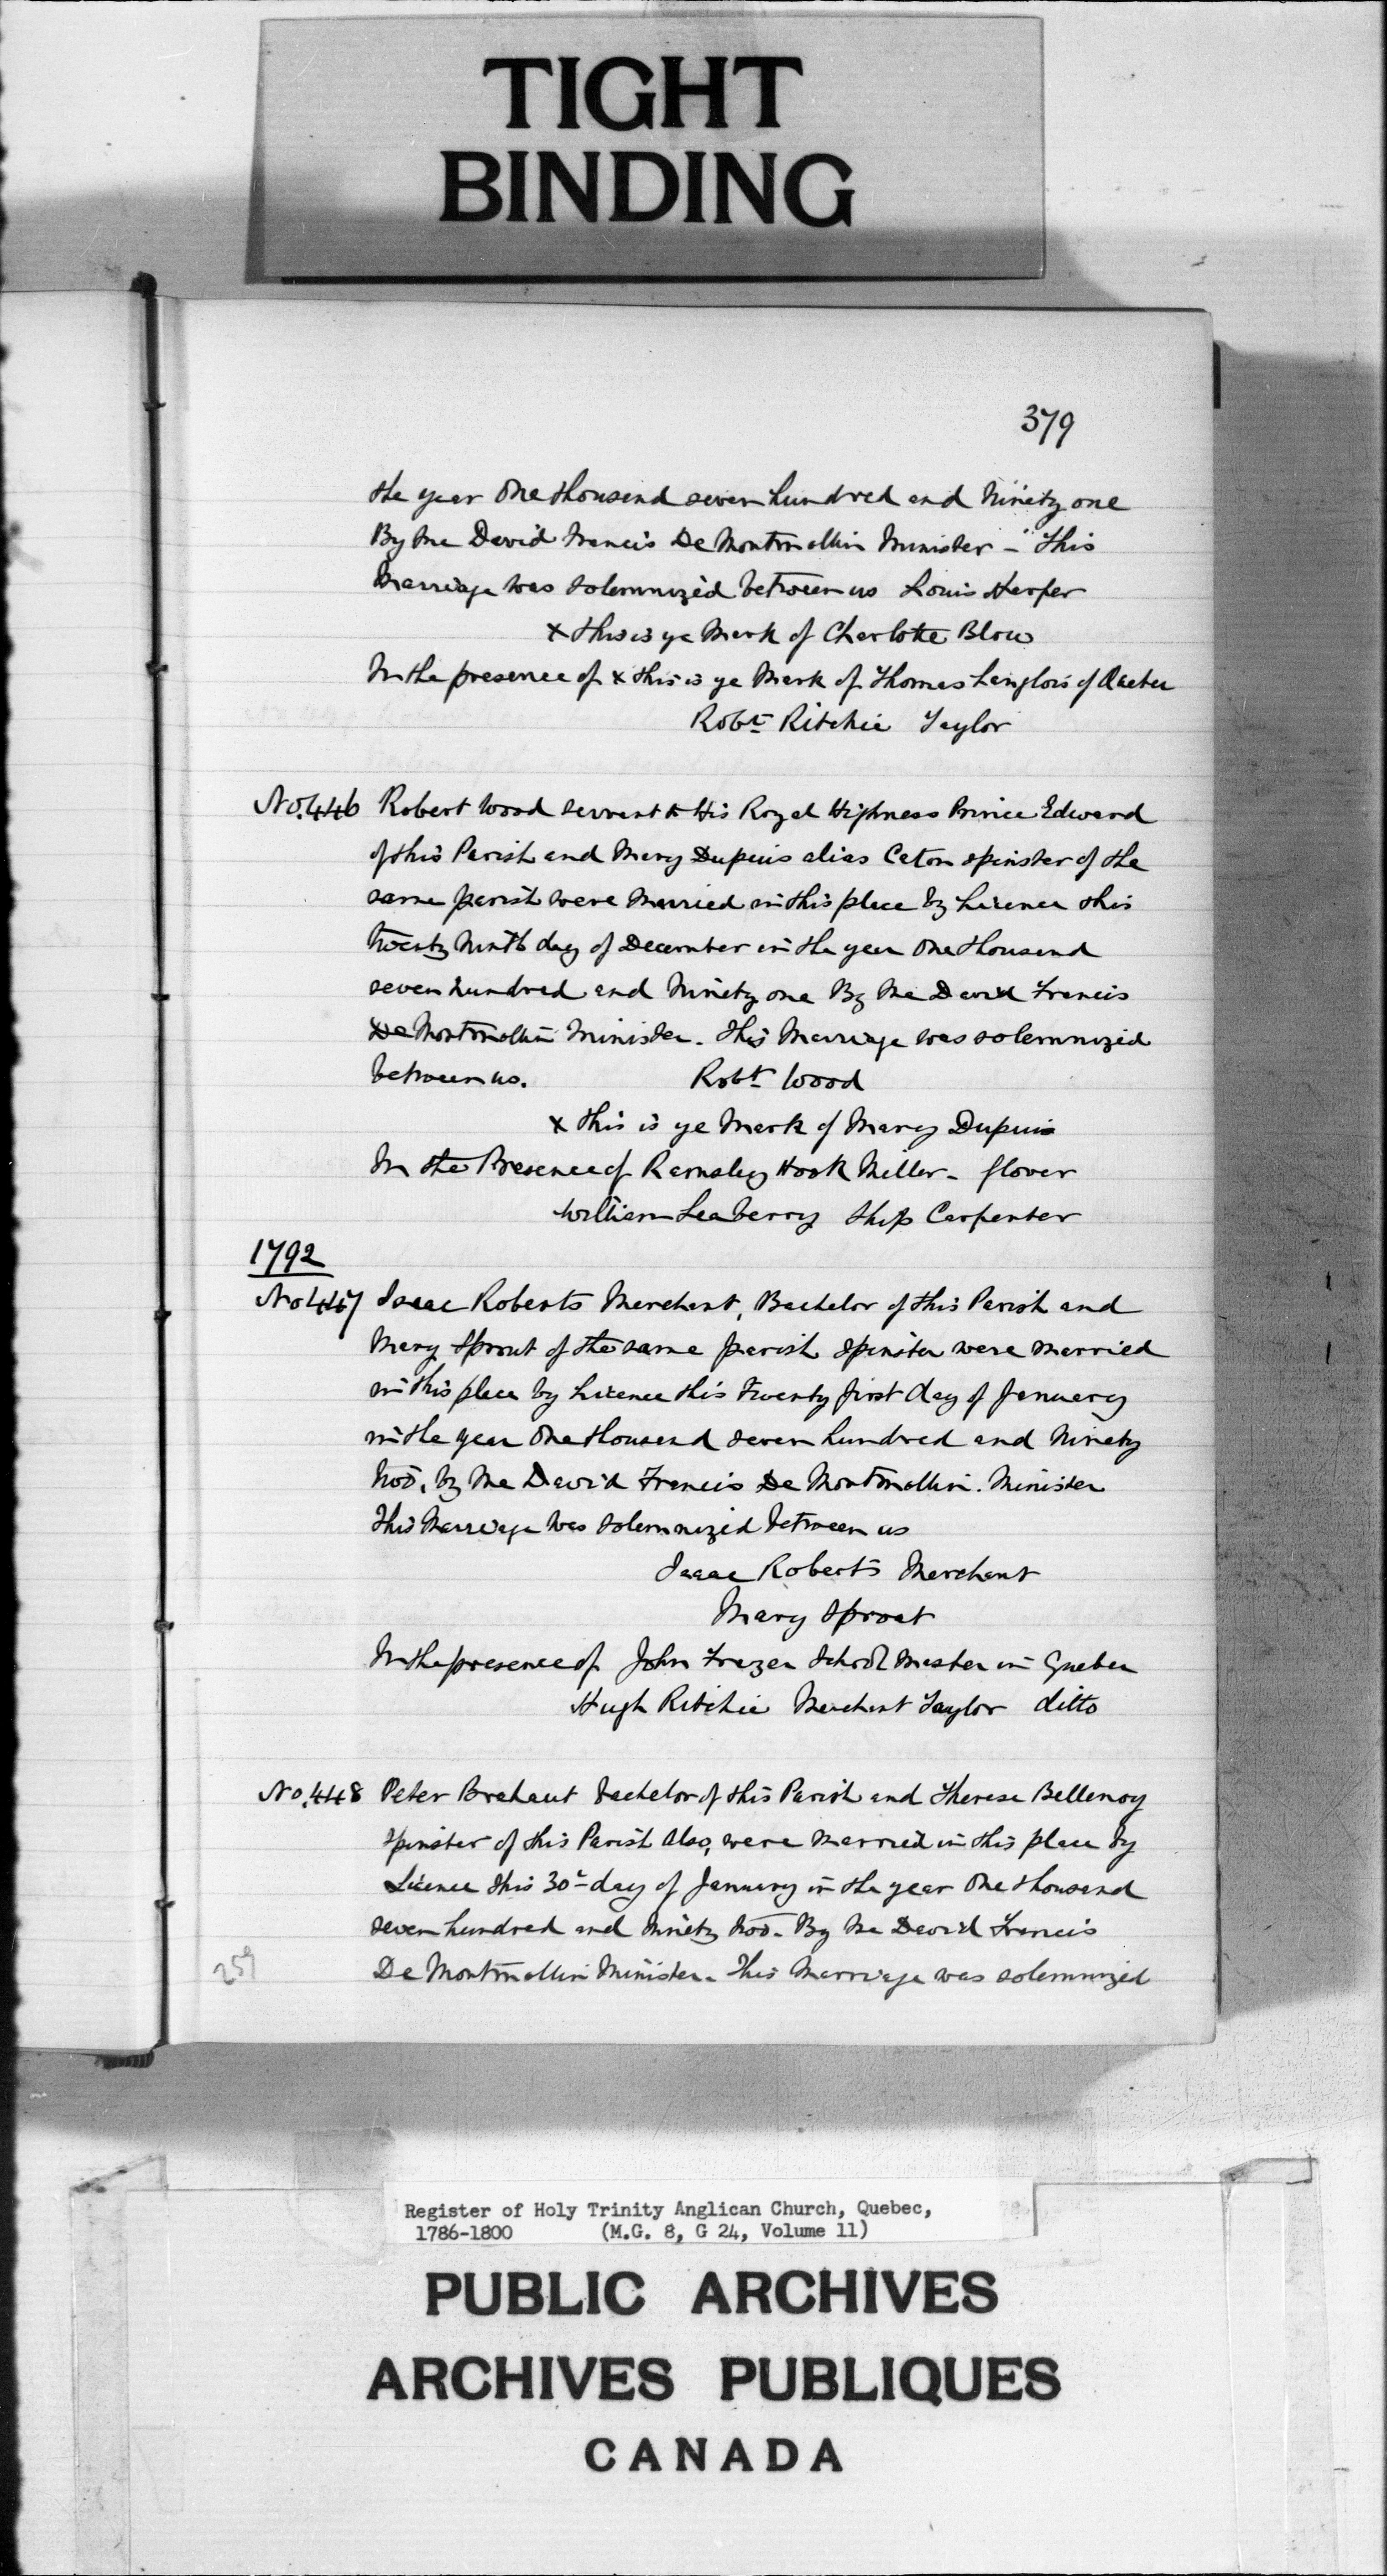 TIGHT
BINDING
379
the year One thousand seven hundred and Ninety one
By Me David Francis De Montmollin Minister – This
Marriage was solemnized between us Louis Harper
x this is ye Mark of Charlotte Blow
In the presence of x this is ye Mark of Thomas Langlois of Quebec
Robt Ritchie Taylor
No. 446 Robert Wood servant to His Royal Highness Prince Edward
of this Parish and Mary Dupuis alias Caton spinster of the
same parish were Married in this place by Licence this
twenty ninth day of December in the year One thousand
seven hundred and Ninety one By Me David Francis
De Montmollin Minister. This Marriage was solemnized
between us. Robt Wood
x this is ye Mark of Mary Dupuis
In the Presence of Ramsley Hook Miller - Glover
William Leaberry Ship Carpenter
1792
No 447 Isaac Roberts Merchant, Bachelor of this Parish and
Mary Sprout of the same parish Spinster were married
in this place by Licence this Twenty first day of January
in the year One thousand seven hundred and Ninety
two, by Me David Francis De Montmollin. Minister
This Marriage was solemnized between us
Isaac Roberts Merchant
Mary Sproat
In the presence of John Frazer School Master in Quebec
Hugh Ritchie Merchant Taylor ditto
No. 448 Peter Brehaut bachelor of this Parish and Therese Bellenoy
spinster of this Parish Also, were Married in this place by
Licence this 30th day of January in the year One thousand
seven hundred and Ninety two. By Me David Francis
De Montmollin Minister. This Marriage was solemnized
259
Register of Holy Trinity Anglican Church, Quebec,
1786-1800 (M.G. 8, G 24, Volume 11)
PUBLIC ARCHIVES
ARCHIVES PUBLIQUES
CANADA